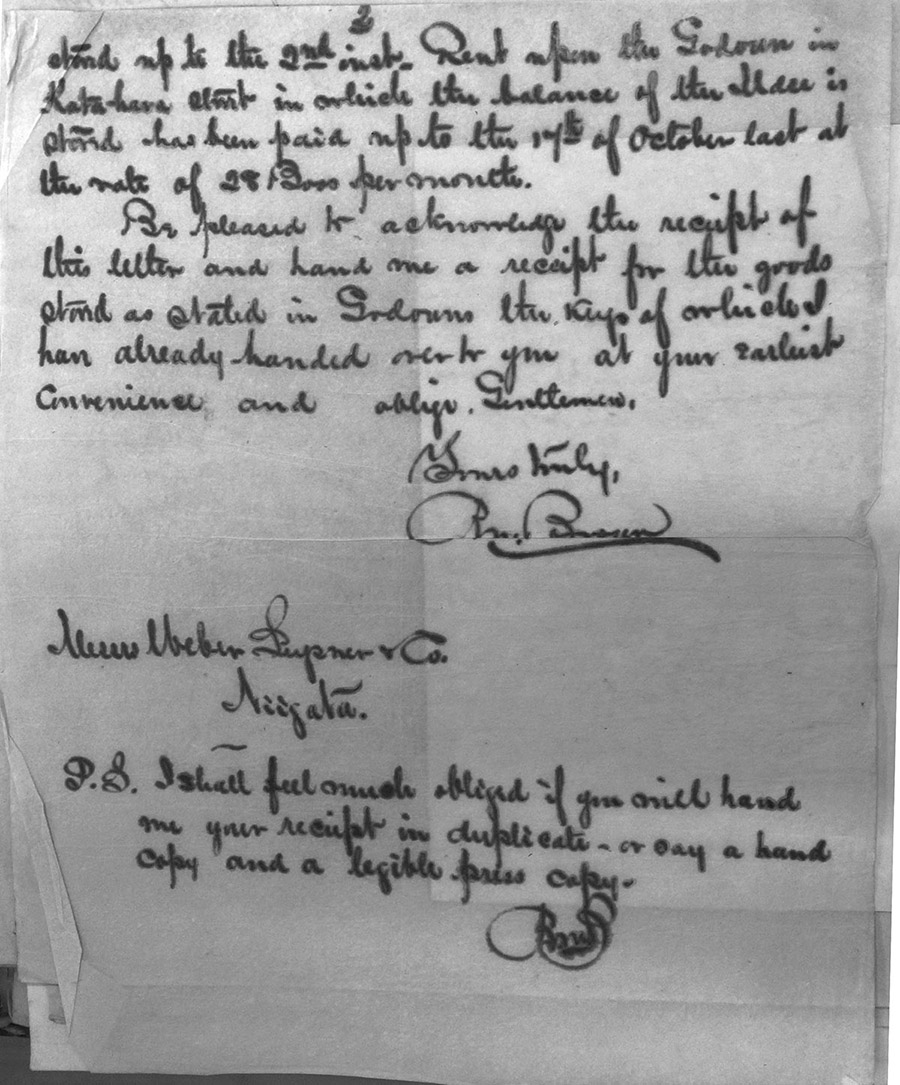 2
stored up to the 2nd inst. Rent upon the Godown in
Katahara street in which the balance of the is
stored has been paid up to the 17th of October last at
the rate of 28 Boos per month.
Be pleased to acknowledge the receipt of
this letter and hand me a receipt for the goods
stored as stated in Godowns the keys of which I
have already handed over to you at your earliest
Convenience and oblige, Gentlemen,
Yours truly,
Messrs Weber & Co.
Niigata.
P.S. I shall feel much obliged if you will hand
me your receipt in duplicate - or say a hand
copy and a legible press copy -